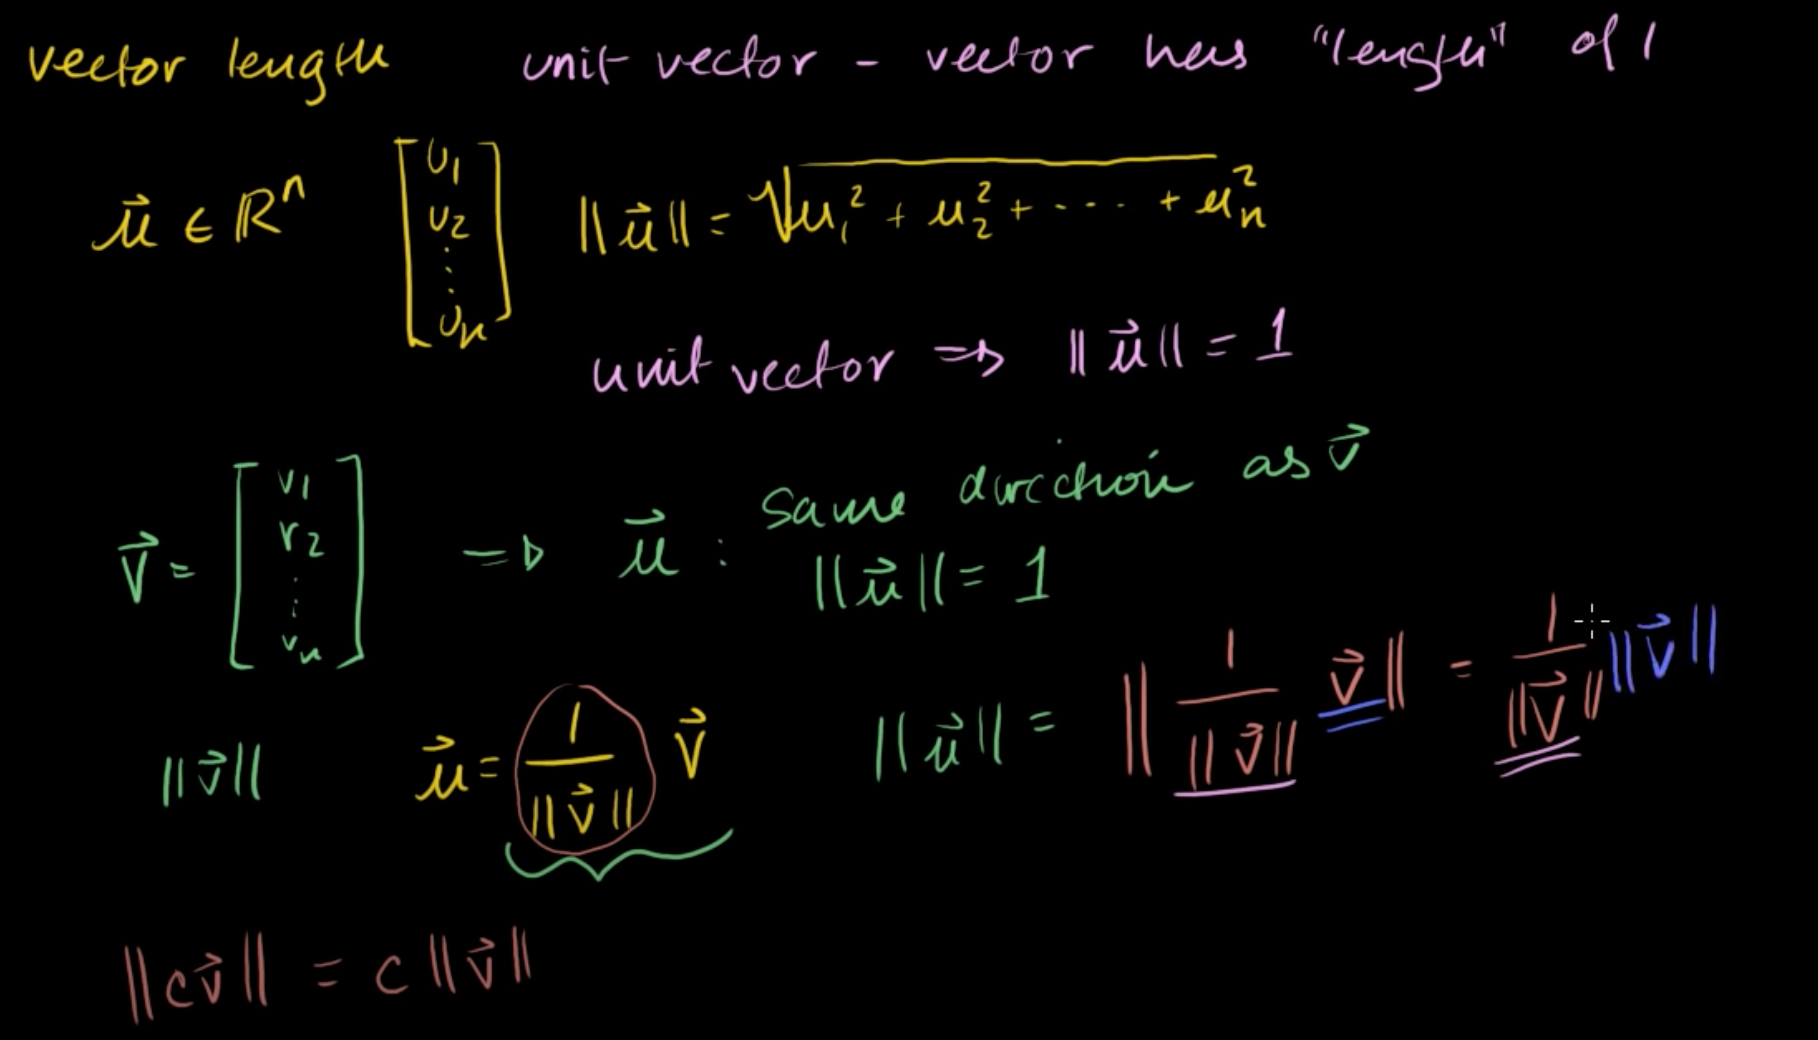 vector length unit vector - vector has "length" of 1
u⃗ ∈ Rⁿ [u₁ u₂ ⋮ uₙ] ||u⃗|| = √(u₁² + u₂² + ···· + uₙ²)
unit vector ⇒ ||u⃗|| = 1
v⃗ = [v₁ v₂ ⋮ vₙ] ⇒ u⃗ : same direction as v⃗
||u⃗|| = 1
||v⃗|| u⃗ = 1/||v⃗|| v⃗ ||u⃗|| = ||1/||v⃗|| v⃗|| = 1/||v⃗|| ||v⃗||
||cv⃗|| = c||v⃗||